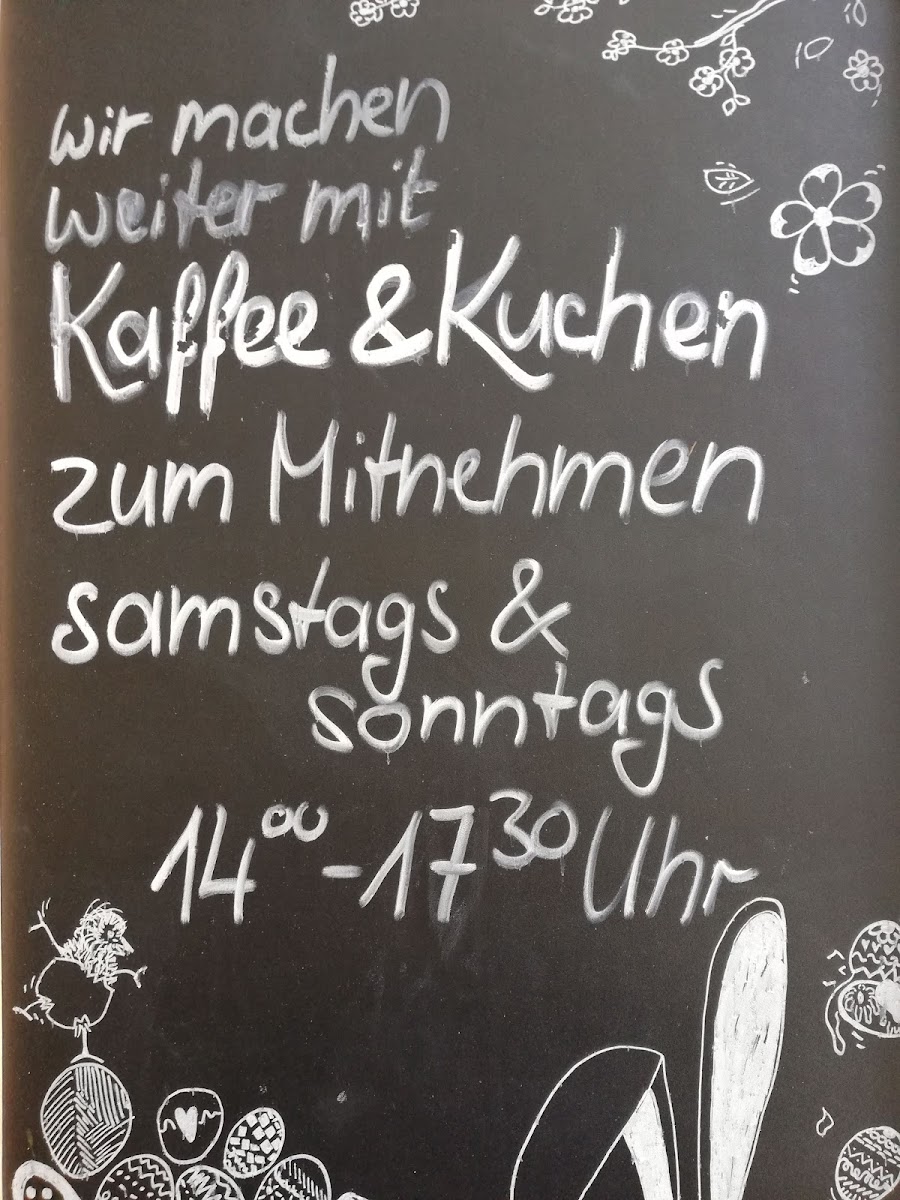 wir machen
weiter mit
Kaffee & Kuchen
zum Mitnehmen
samstags &
sonntags
14⁰⁰ - 17³⁰ Uhr